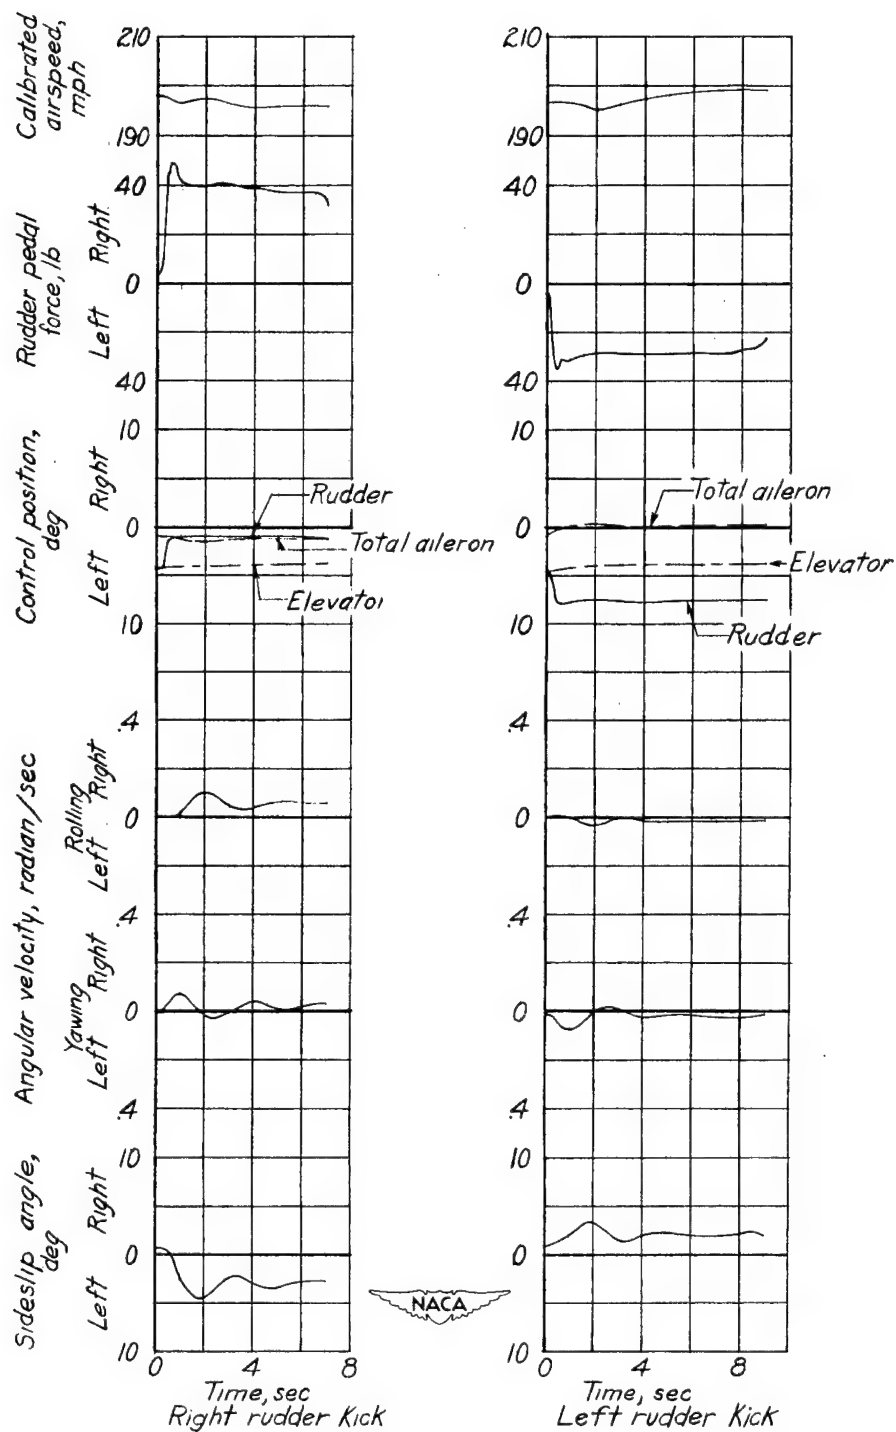 Calibrated
airspeed,
mph
210
190
Rudder pedal
force, lb
Left Right
40
0
40
Control position,
deg
Left Right
10
0
10
Rudder
Total aileron
Elevator
Angular velocity, radian/sec
Rolling
Left Right
.4
0
.4
Yawing
Left Right
0
.4
Sideslip angle,
deg
Left Right
10
0
10
0 4 8
Time, sec
Right rudder kick
NACA
210
190
40
0
40
10
0
10
Total aileron
Elevator
Rudder
.4
0
.4
0
.4
10
0
10
0 4 8
Time, sec
Left rudder kick